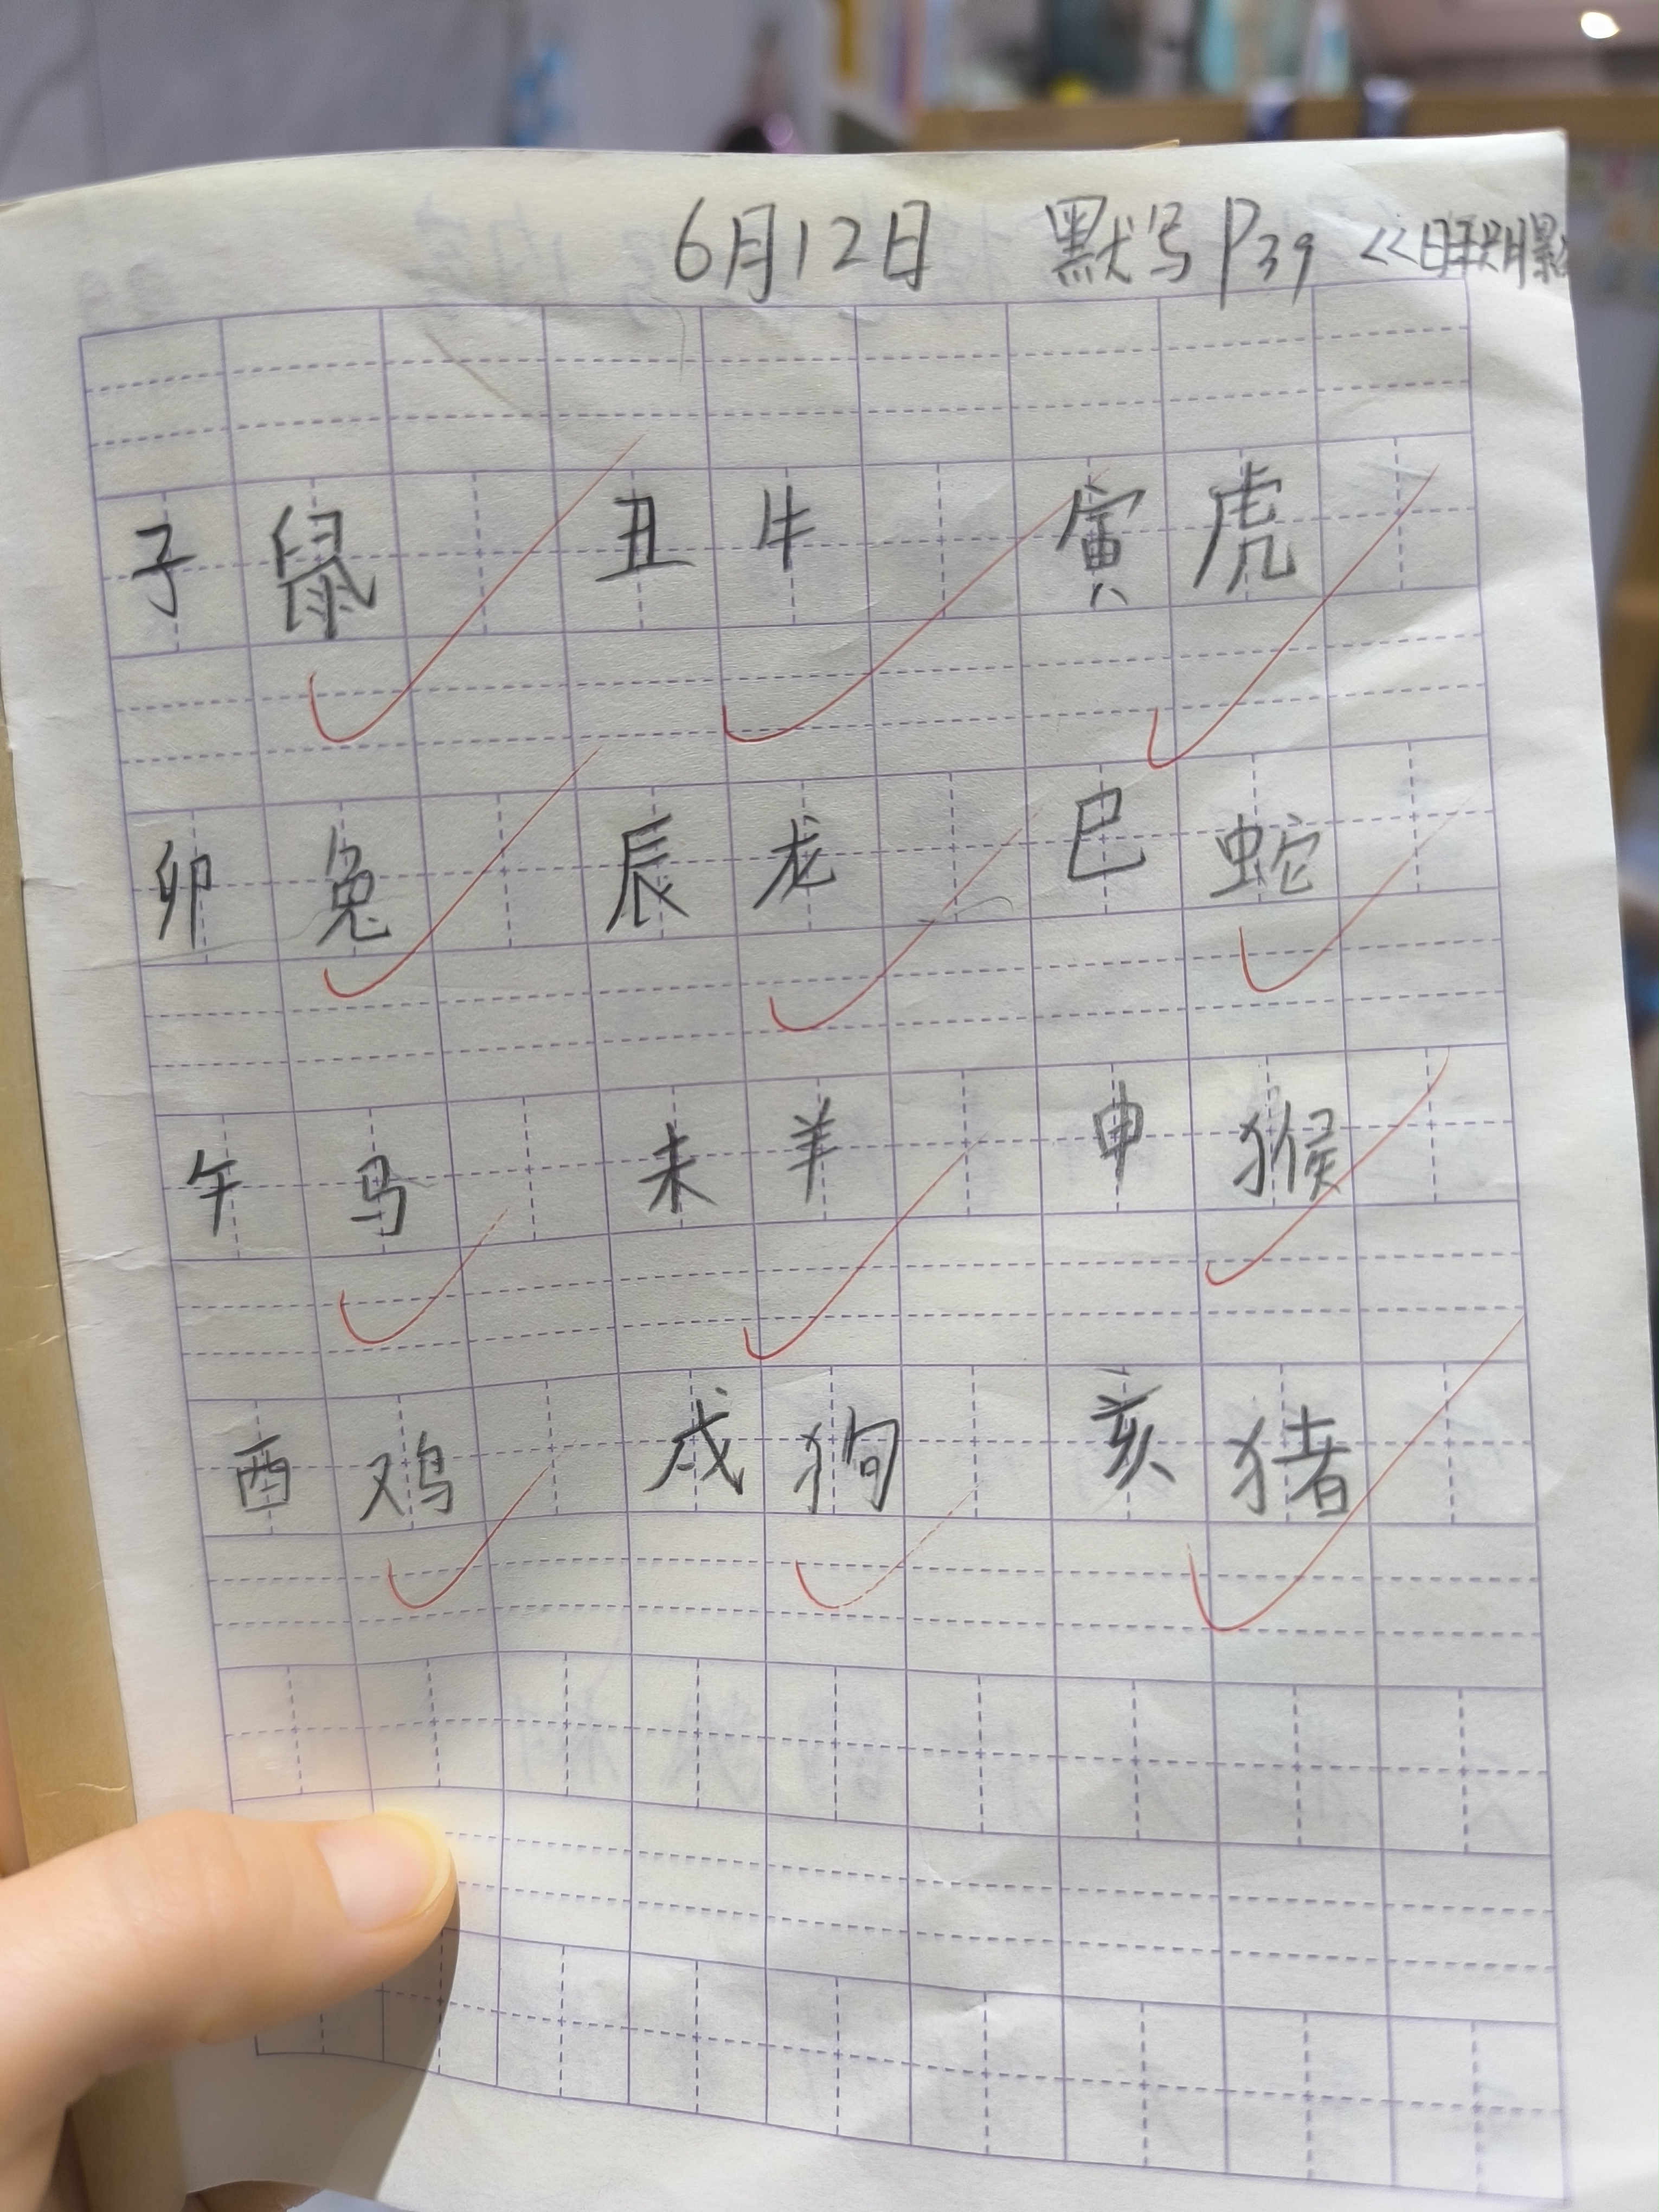 6月12日 默写P39
子鼠 丑牛 寅虎
卯兔 辰龙 巳蛇
午马 未羊 申猴
酉鸡 戌狗 亥猪